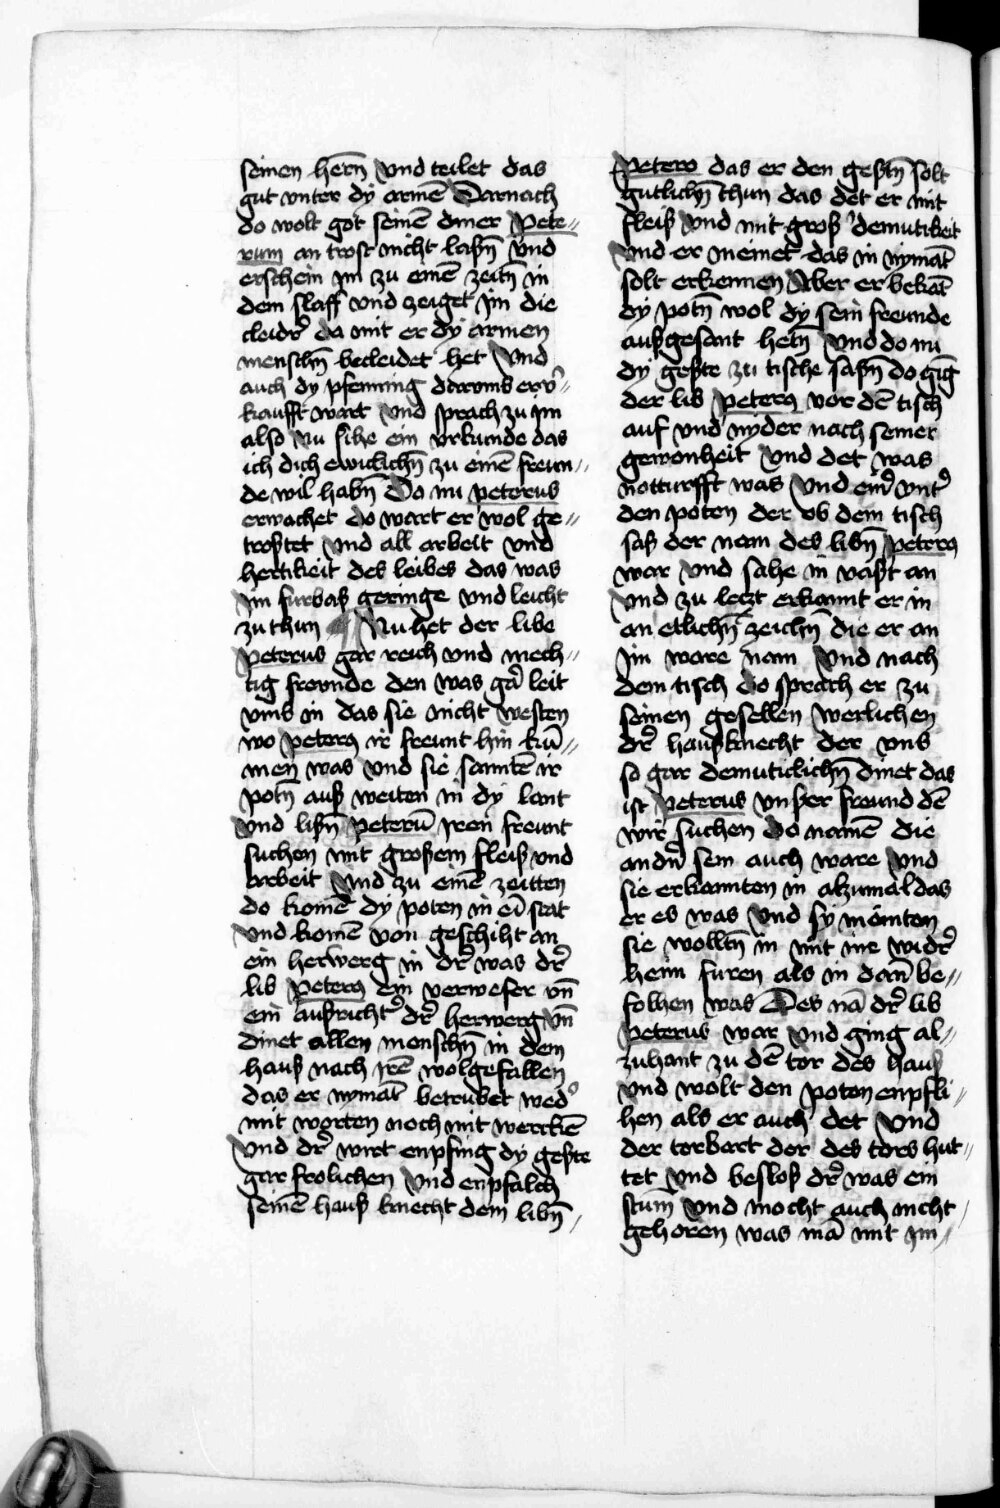 seinen hern̄ vnd teilet das
gut vnter dy armē Darnach
do wolt got seinē diner Pete„
rum an trost nicht lasn̄ vnd
erschein jm zu einē zeitn̄ in
dem slaff vnd zeiget jm die
cleidr̄ da mit er dy armen
menschn̄ becleidet het Vnd
auch dy pfenning dorumb er v̾„
kaufft wart vnd sprach zu im
also Nu sihe ein vrkunde das
ich dich ewiclichn̄ zu einē freun„
de wil habn̄ Do nu peterus
erwachet do wart er wol ge„
trostet vnd all arbeit vnd
hertikeit des leibes das was
jm furbaß geringe vnd leicht
zu thun Nu het der libe
peterus gar reich vnd mech„
tig freunde den was gā leit
vmb in das sie nicht westen
wo peters ir freunt hin kū„
men was vnd sie santtē ir
potn̄ auß weiten in dy lant
vnd libn̄ peterū jren freunt
suchen mit großem fleiß vnd
arbeit vnd zu einē zeitten
do komē dy poten in ei stat
vnd komē von geschiht an
ein herwerg in dr̄ was dr̄
lib peters ein verweser vn̄
ein außricht̾ dr̄ herwerg vn̄
dinet allen menschn̄ in dem
hauß nach jrē wolgefallen
das er nymāt betrubet wed̾
mit worten noch mit werckē
vnd dr̄ wirt enpfing dy geste
gar frolichen vnd enpfalch
seinē hauß knecht dem libn̄„
petero das er den gestn̄ solt
gutlichn̄ thun das det er mit
fleiß vnd mit groß̾ demutikeit
vnd er meinet das in nymāt
solt erkennen Aber er bekāt
dy potn̄ wol dy sein freunde
außgesant hetn̄ vnd do nu
dy geste zu tische saßn̄ do gīg
der lib peters vor dē tisch
auf vnd nyder nach seiner
gewonheit vnd det was
notturfft was vnd ein̾ vnt̾
den poten der ob dem tisch
saß der nam des libn̄ peters
war vnd sahe in vast an
vnd zu leczt erkannt er in
an etlichn̄ zeichn̄ die er an
jm ware nam vnd nach
dem tisch do sprach er zu
seinen gesellen werlichen
dr̄ haußknecht der vns
so gar demuticlichn̄ dinet das
ist peterus vnßer freund dē
wir suchen do namē die
andn̄ sein auch ware vnd
sie erkannten in alzumal das
er es was vnd sy mointen
sie wolltn̄ in mit ine widr̄
heim furen als in dan̄ be„
folhen was Des nā dr̄ lib
peterus war vnd ging al„
zuhant zu dē tor des hauß
vnd wolt den poten enpfli„
hen als er auch det vnd
der torbart der des tors hut„
tet vnd besloß dr̄ was ein
stum̄ vnd mocht auch nicht
gehoren was mā mit jm„